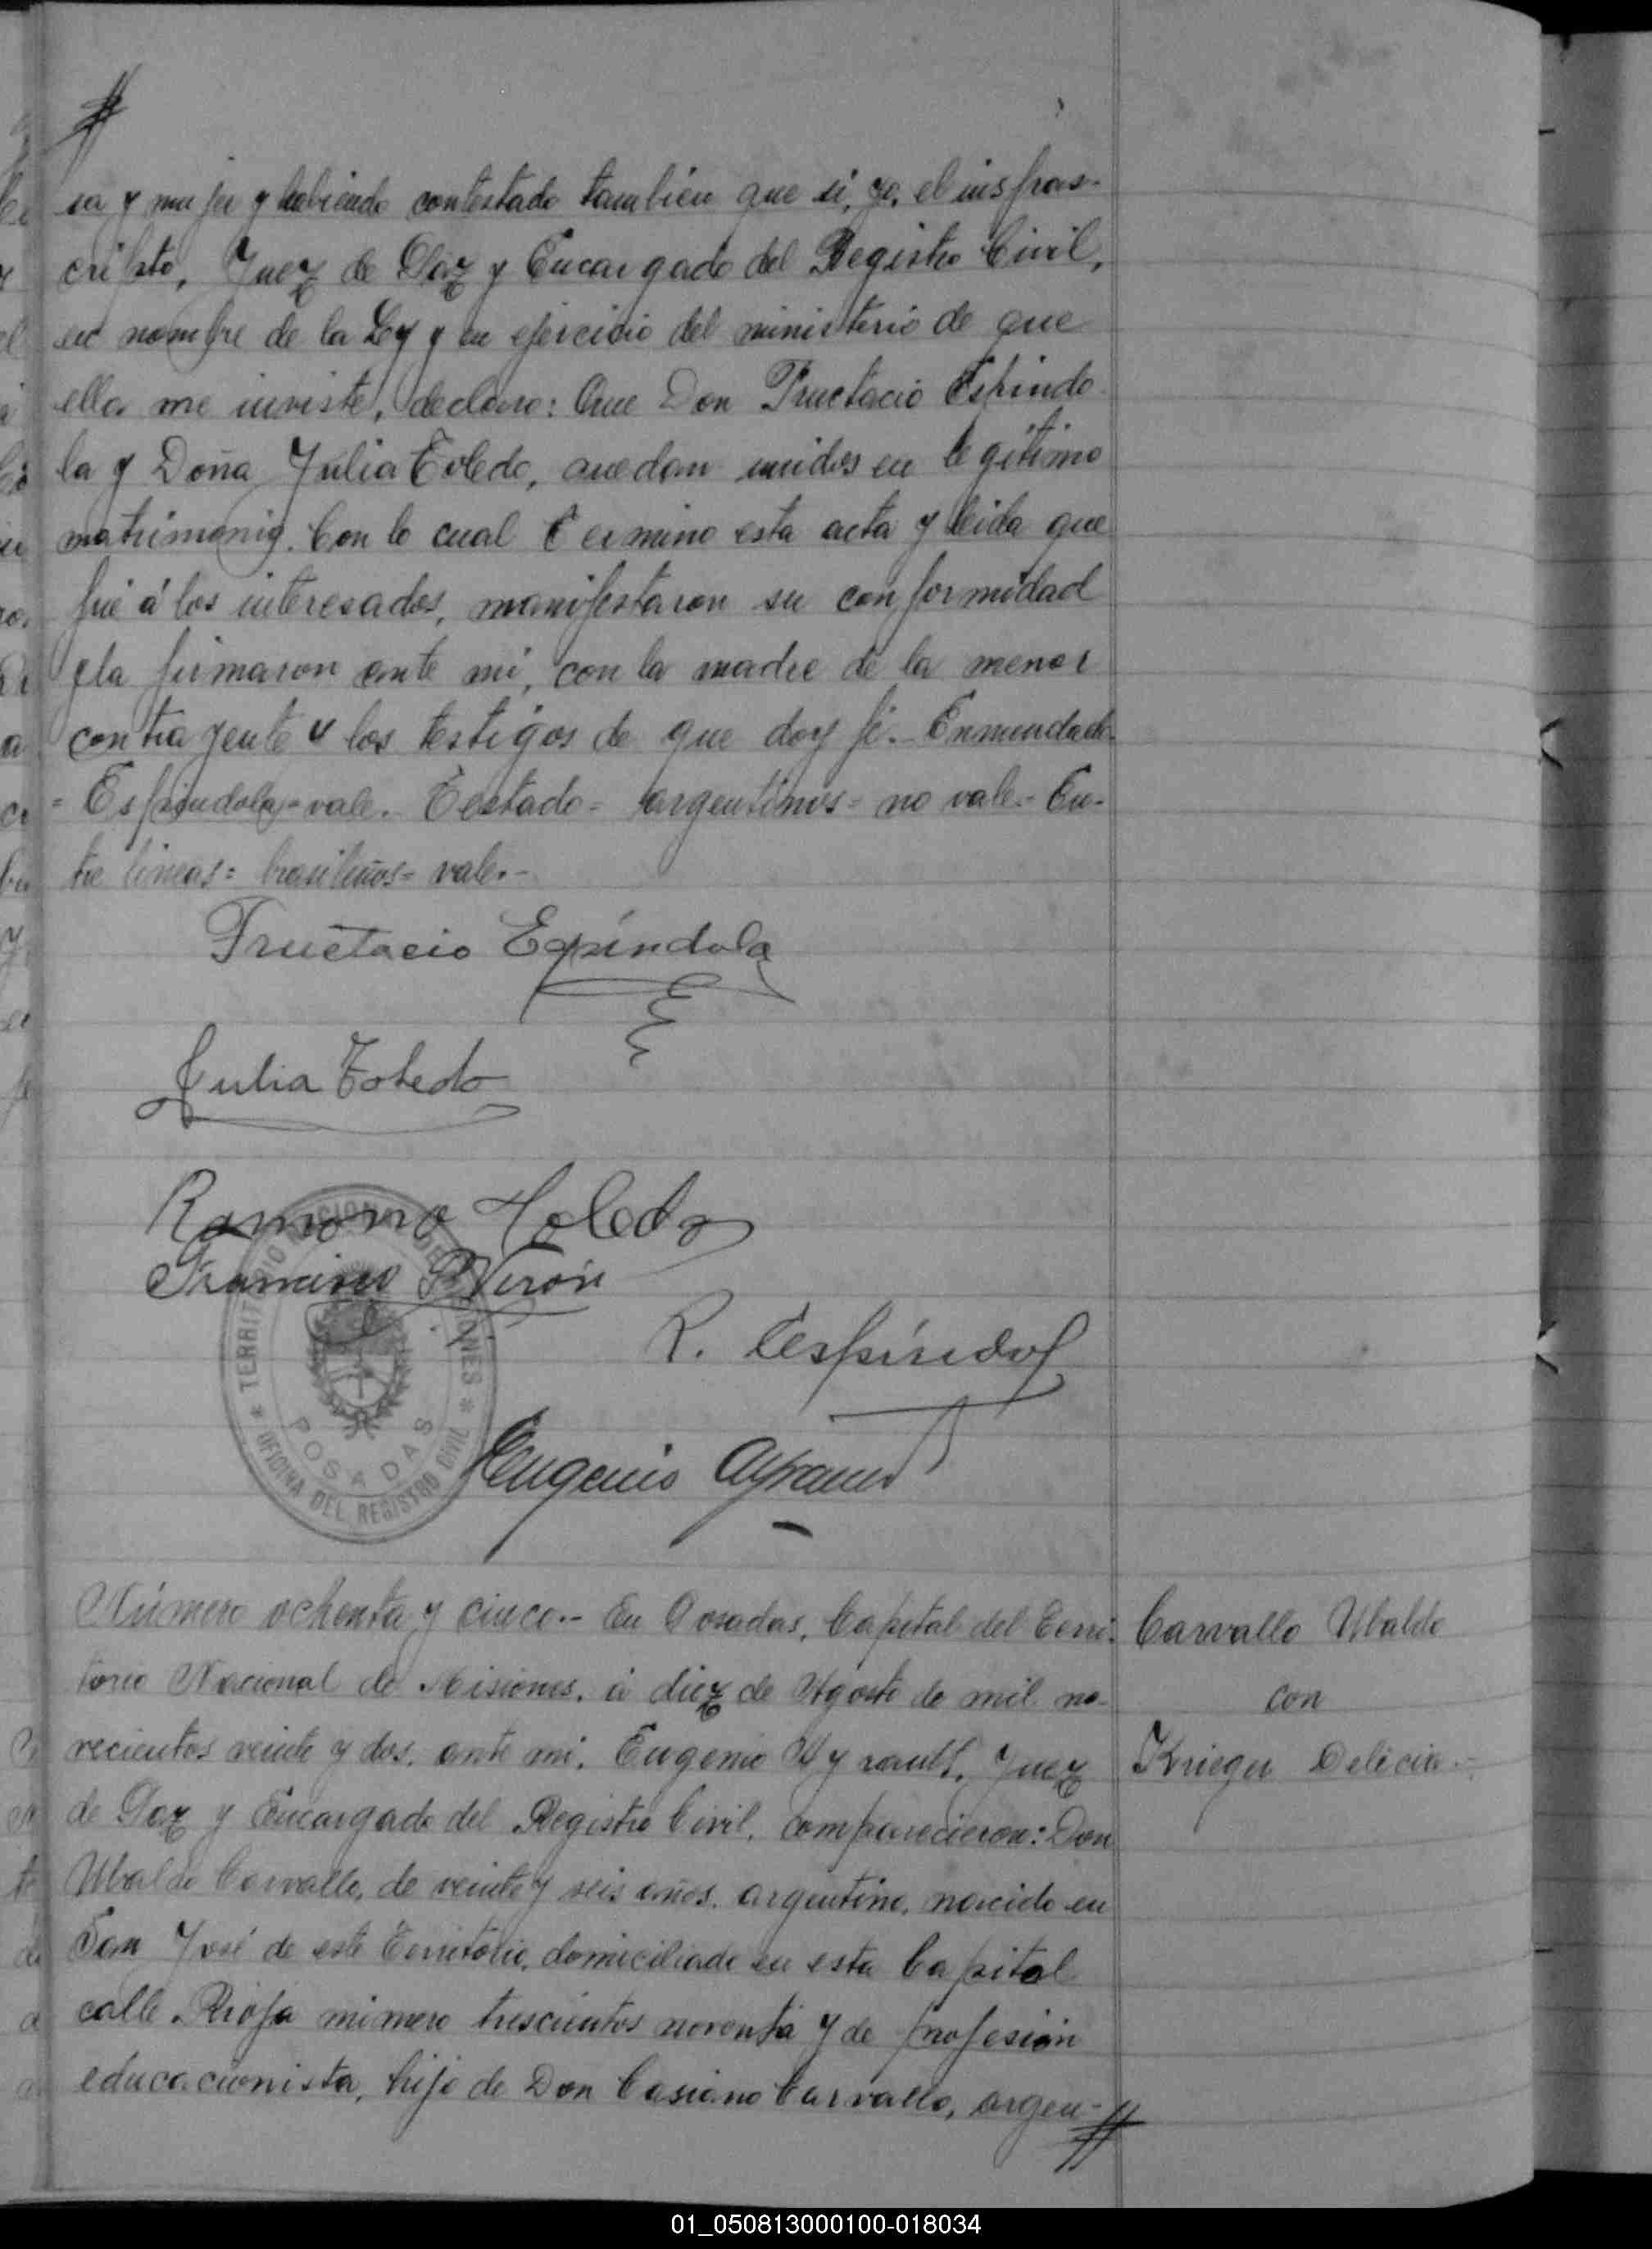 sa y mujer y habiendo contestado tambien que si, yo, el infras-
cripto, Juez de Paz y Encargado del Registro Civil,
en nombre de la Ley y en ejercicio del ministerio de que
ella me inviste, declaro: Que Don Fructacio Espindo-
la y Doña Julia Toledo, quedan unidos en legítimo
matrimonio. Con lo cual termino esta acta y leida que
fué á los interesados, manifestaron su conformidad
y la firmaron ante mi, con la madre de la menor
contrayente y los testigos de que doy fé.- Enmendado
= Espindola = vale. Testado = argentinos = no vale.- En-
tre lineas = brasileños = vale.-
Fructacio Espíndola
Julia Toledo
Ramona Toledo
Verón
R. Espíndola
Eugenio Ayrault
TERRITORIO NACIONAL DE MISIONES
POSADAS
OFICINA DEL REGISTRO CIVIL
Número ochenta y cinco.- En Posadas, Capital del Terri-
torio Nacional de Misiones, á diez de Agosto de mil no-
vecientos veinte y dos, ante mi, Eugenio Ayrault, Juez
de Paz y Encargado del Registro Civil, comparecieron: Don
Ubaldo Carvallo, de veinte y seis años, argentino, nacido en
San José de este Territorio, domiciliado en esta Capital
calle Rioja número trescientos noventa y de profesión
educacionista, hijo de Don Casiano Carvallo, argen-//
Carvallo Ubaldo
con
Krieger Delicia.-
01_050813000100-018034